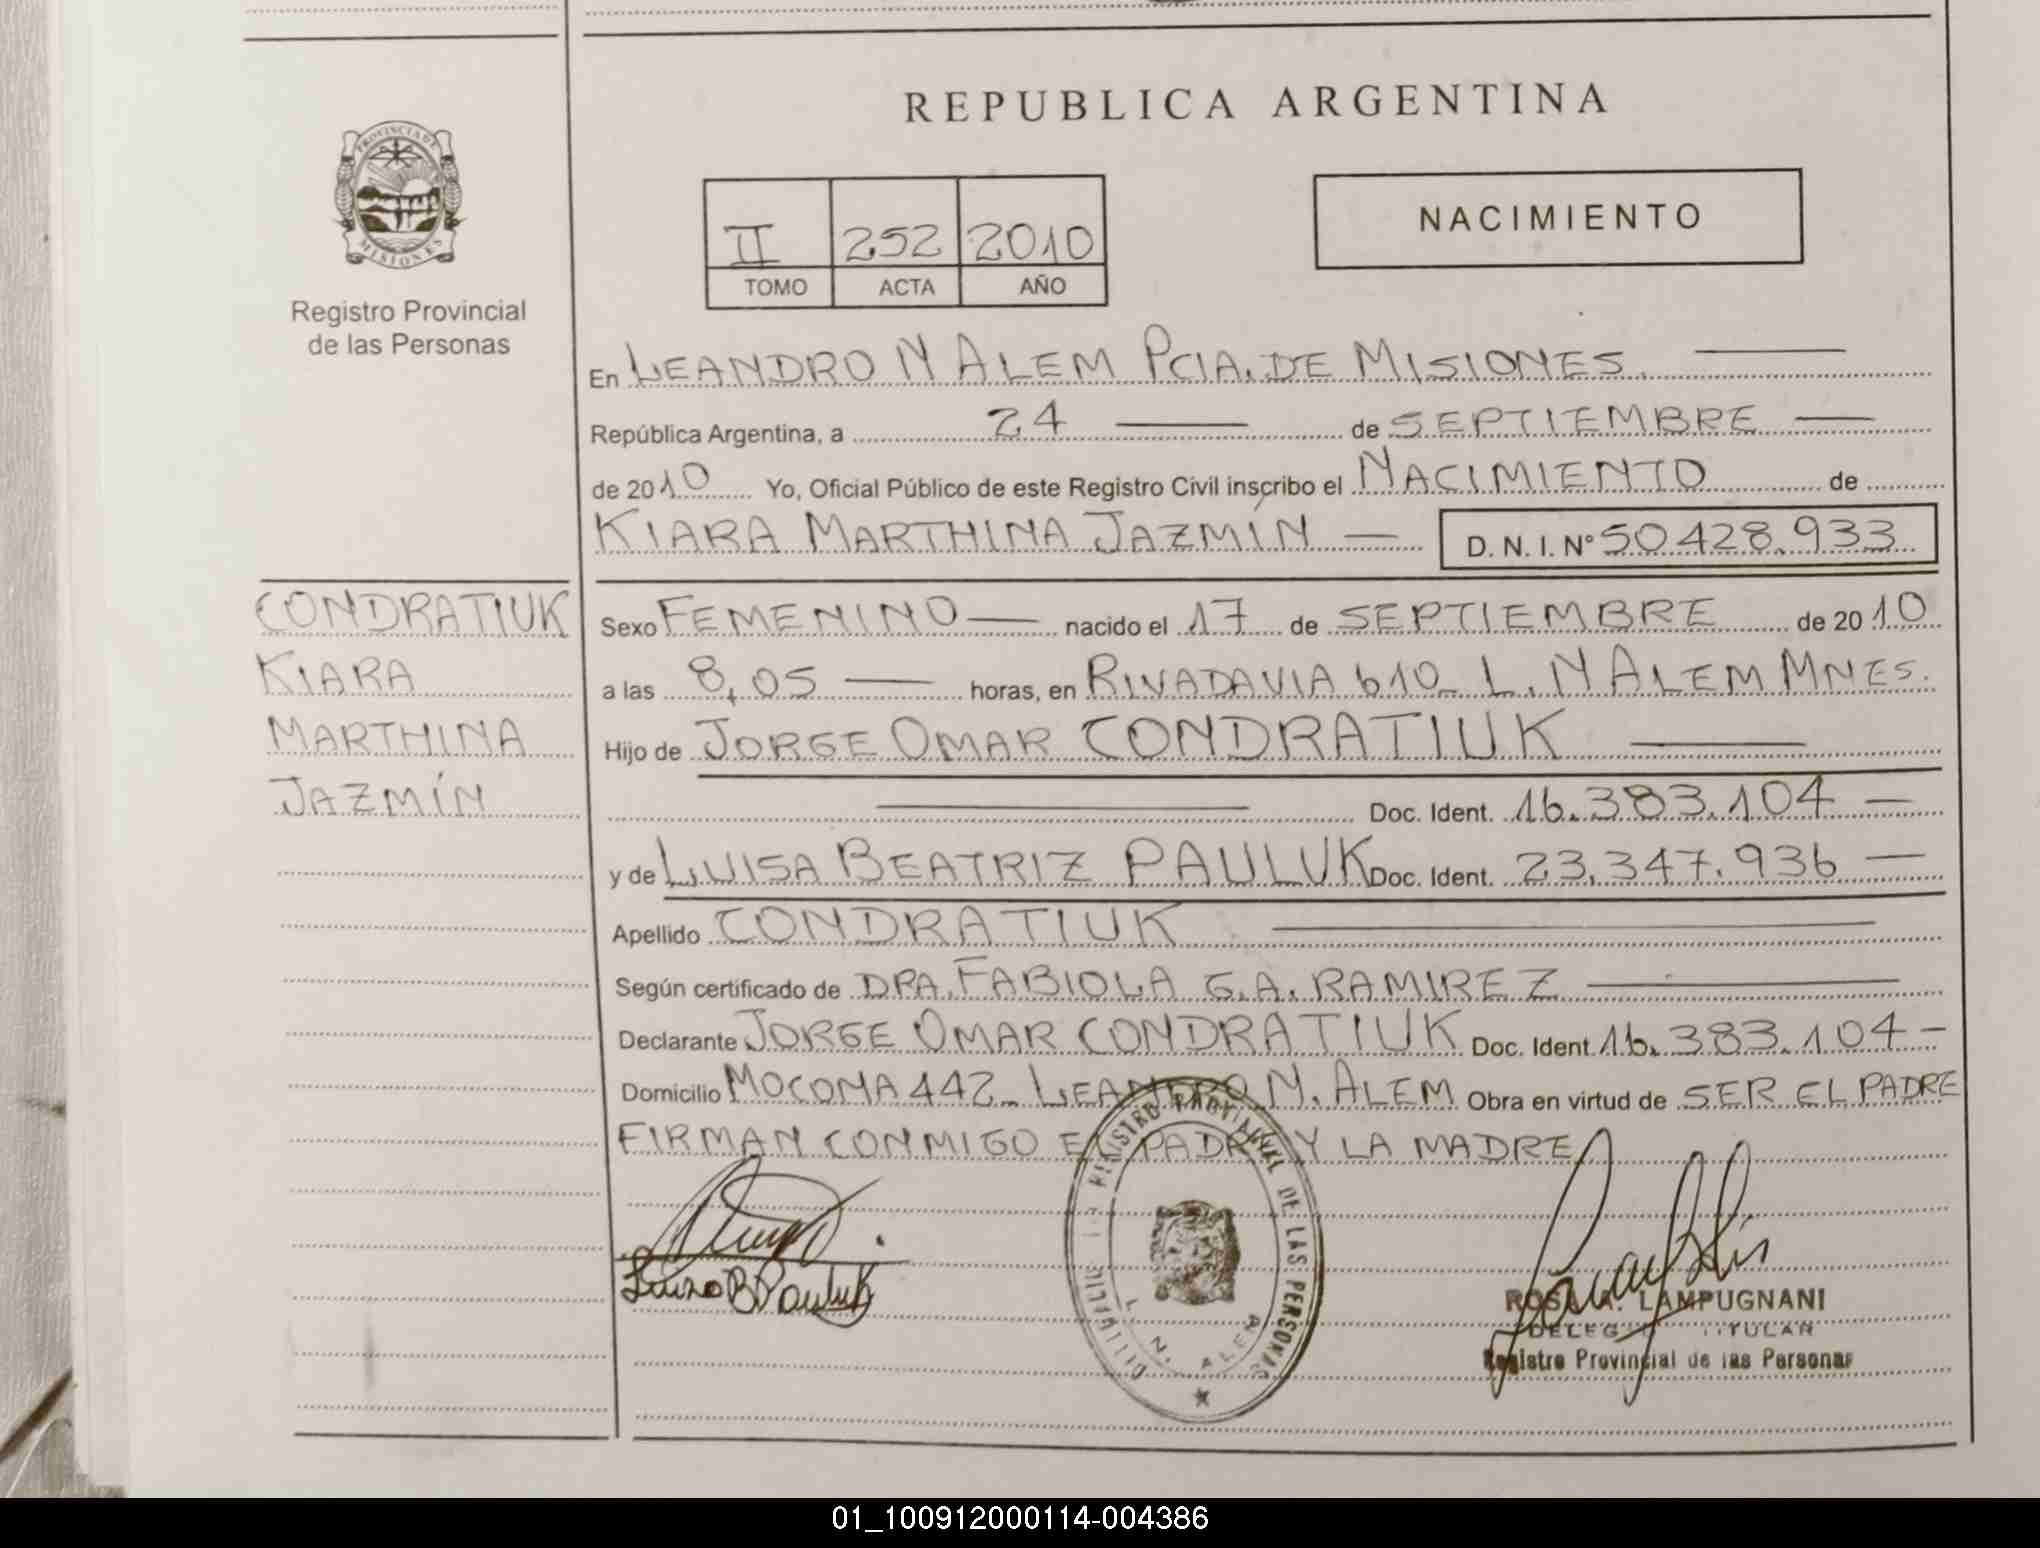 REPUBLICA ARGENTINA
PROVINCIA DE
MISIONES
Registro Provincial
de las Personas
II 252 2010
TOMO ACTA AÑO
NACIMIENTO
En LEANDRO N ALEM PCIA. DE MISIONES.
República Argentina, a 24 de SEPTIEMBRE
de 2010 Yo, Oficial Público de este Registro Civil inscribo el NACIMIENTO de
KIARA MARTHINA JAZMÍN D. N. I. Nº 50.428.933
CONDRATIUK
KIARA
MARTHINA
JAZMÍN
Sexo FEMENINO nacido el 17 de SEPTIEMBRE de 2010
a las 8,05 horas, en RIVADAVIA 610_ L. N ALEM MNES.
Hijo de JORGE OMAR CONDRATIUK
Doc. Ident. 16.383.104
y de LUISA BEATRIZ PAULUK Doc. Ident. 23.347.936
Apellido CONDRATIUK
Según certificado de DRA. FABIOLA G.A. RAMIREZ
Declarante JORGE OMAR CONDRATIUK Doc. Ident. 16.383.104
Domicilio MOCONA 442_ LEANDRO N. ALEM Obra en virtud de SER EL PADRE
FIRMAN CONMIGO EL PADRE Y LA MADRE
Luisa B Pauluk
REGISTRO PROVINCIAL DE LAS PERSONAS
L. N. ALEM
ROSA A. LAMPUGNANI
TITULAR
Registro Provincial de las Personas
01_100912000114-004386